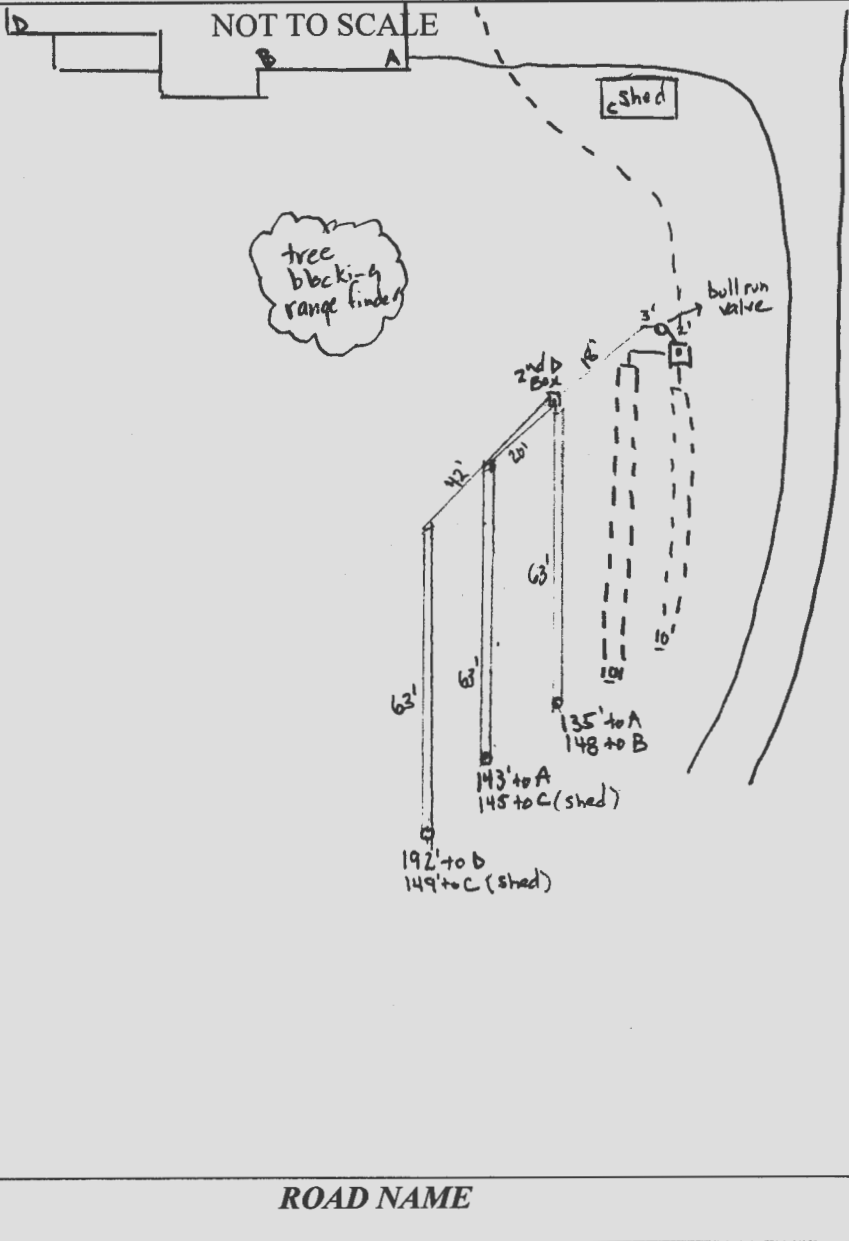 NOT TO SCALE
D
B
A
c shed
tree
blocking
range finder
bull run
valve
3'
2'
18'
2nd D
Box
20'
42'
63'
10'
10'
63'
63'
135' to A
148 to B
143' to A
145 to C (shed)
192' to D
149' to C (shed)
ROAD NAME